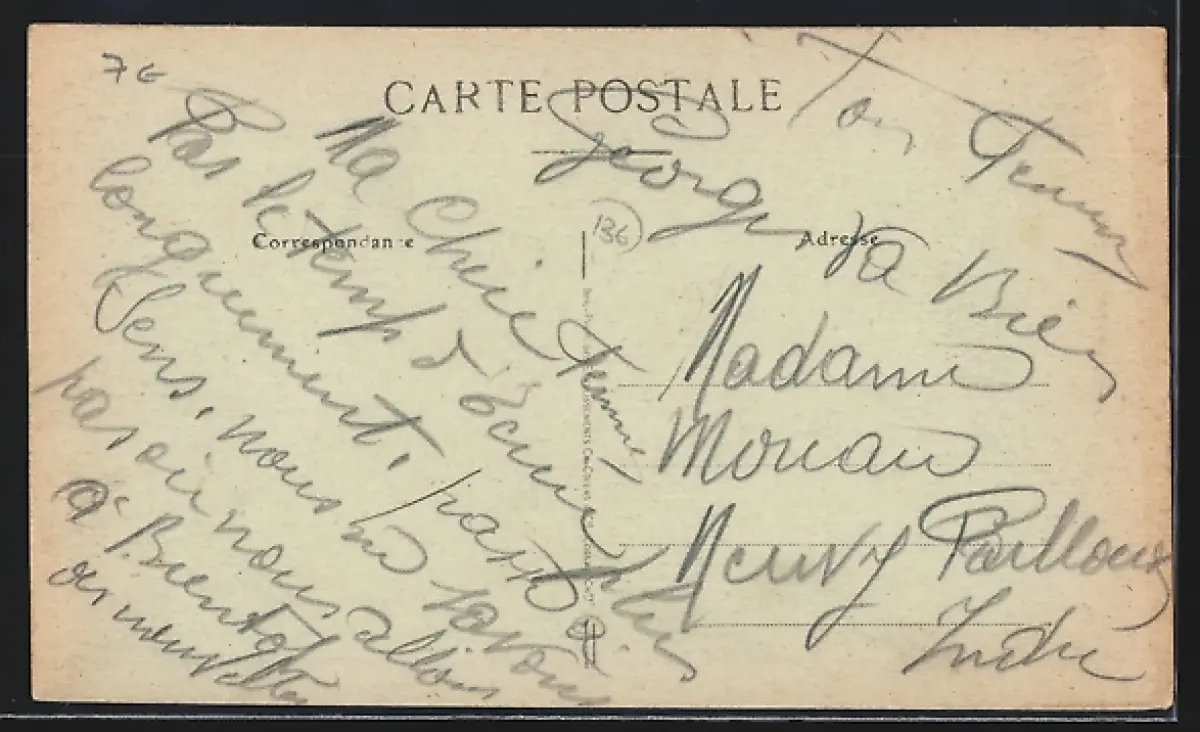 7 G
CARTE POSTALE
Correspondance
Adresse
136
Ma Cherie Femme
Pas le temp d'Ecrire plus
longuement, passé
Sens, nous ne savons
pas où nous allons
a Bientot
Ton Femmy
Georges va Bien
Madame
Moreau
Neuvy Pailloux
Indre